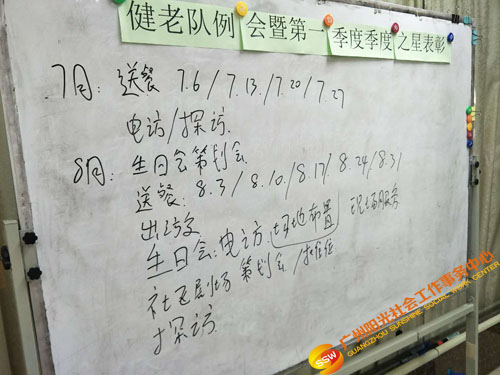 健老队例会暨第一季度季度之星表彰
7月: 送餐 7.6/7.13./7.20/7.27
电访/探访.
8月: 生日会策划会.
送餐: 8.3/8.10./8.17/8.24/8.31
出访
生日会: 电访. 场地布置 现场服务
社区剧场 策划会/
探访
广州阳光社会工作事务中心
GUANGZHOU SUNSHINE SOCIAL WORK CENTER
SSW